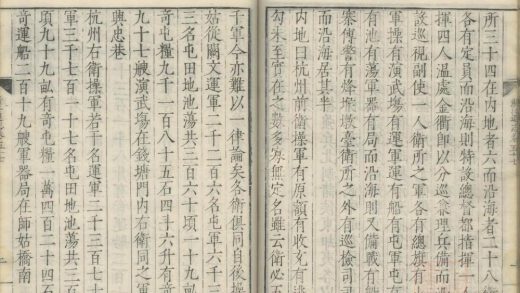 所三十四在内地者六而沿海者二十八衛
各有定員而沿海則特設總督都指揮一人
揮四人温處金衢即以分巡兼理兵備而
設巡視副使一人衛所之軍各有總旗有
軍操有演武塲有運軍運有船有屯軍屯有
有池有蕩軍器有局而沿海則又備戰有
寨傳警有烽堠墩臺衛所之外有巡檢司
而沿海居其半
内地曰杭州前衛操軍有原額有收充有逃
勾未至實在之數多寡無定名雖云衛必五
千軍今亦難以一律論矣各衛俱同自後操
姑從闕文運軍二千二百六名屯軍六千三
三名屯田地池蕩共三百六十頃一十九畝
竒屯糧九千一百八十五石四斗六升有竒
九十七艘演武塲在錢塘門内右衛同之軍
與忠巷
杭州右衛操軍若干名運軍二千三百七十
軍三千七百一十七名屯田地池蕩共三百
項九十九畝有竒屯糧一萬四百二十四石
竒運船二百一十九艘軍器局在師姑橋南